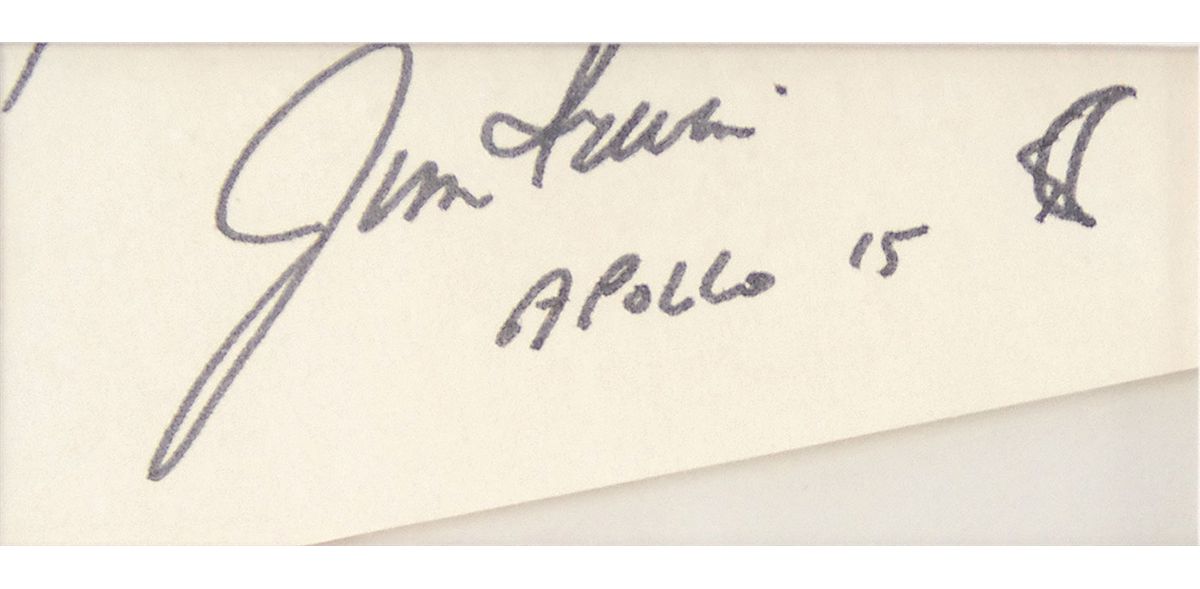 Jim Irwin
APOLLO 15